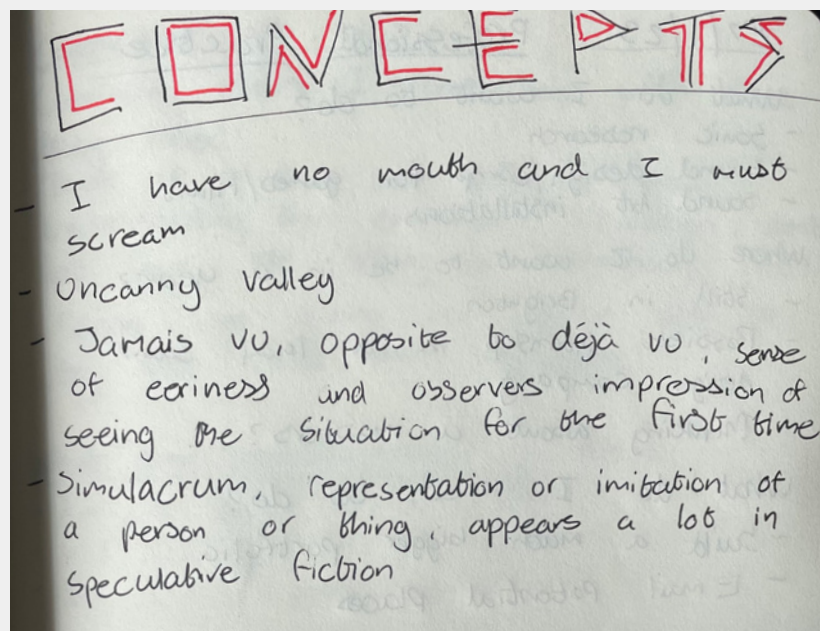 CONCEPTS
- I have no mouth and I must
scream
- Uncanny valley
- Jamais vu, opposite to déjà vu, sense
of eeriness and observers impression of
seeing the situation for the first time
- Simulacrum, representation or imitation of
a person or thing, appears a lot in
speculative fiction